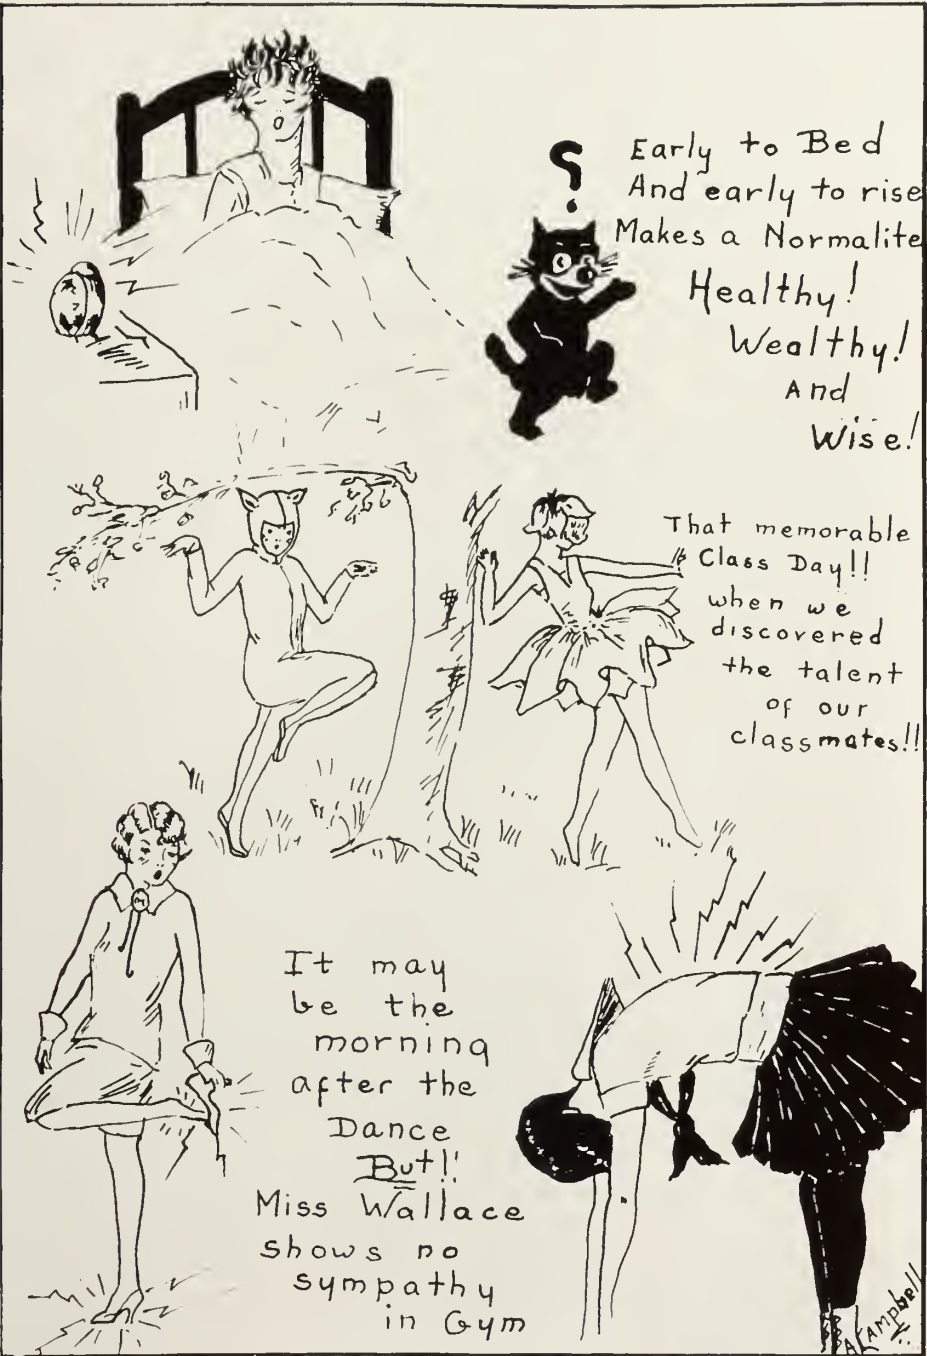 ?
Early to Bed
And early to rise
Makes a Normalite
Healthy!
Wealthy!
And
Wise!
That memorable
Class Day!!
when we
discovered
the talent
of our
classmates!!
It may
be the
morning
after the
Dance
But!!
Miss Wallace
shows no
sympathy
in Gym
A Campbell